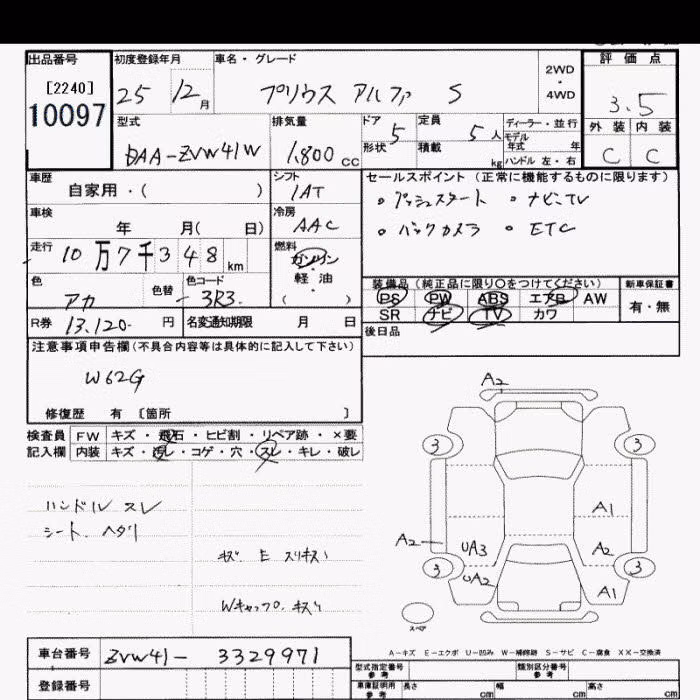 出品番号 初度登録年月 車名・グレード 2WD・4WD 評価点
[2240]
10097
25 12月 プリウス アルファ S 3.5
型式 排気量 ドア 形状 定員 積載 ディーラー・並行 外装 内装
DAA-ZVW41W 1,800cc 5 5人 kg モデル年式 年 ハンドル 左・右 C C
車歴 シフト セールスポイント (正常に機能するものに限ります)
自家用・( ) IAT 。プッシュスタート 。ナビ:TV
車検 冷房 。バックカメラ 。ETC
年 月( 日) AAC
走行 10万7千348km 燃料 ガソリン・軽油 ( )
装備品(純正品に限り〇をつけてください) 新車保証書
PS PW ABS エアB AW 有・無
SR ナビ TV カワ
色 アカ 色替 色コード 3R3 後日品
R券 13,120- 円 名変通知期限 月 日
注意事項申告欄(不具合内容等は具体的に記入して下さい)
W62G
修復歴 有 〔箇所 〕
検査員 記入欄 FW キズ・飛石・ヒビ割・リペア跡・×要
内装 キズ・ ・コゲ・穴・スレ・キレ・破レ
ハンドル スレ
シート ヘタリ
キズ E スリキズ
Wキャップ キズ
A2
3 3
A1
A2 UA3 A2
3 UA2 3
A1
スペア
A-キズ E-エクボ U-凹み W-補修跡 S-サビ C-腐食 XX-交換済
車台番号 ZVW41-3329971
登録番号
型式指定番号 参考 類別区分番号 参考
車庫証明用 参考 長さ cm 幅 cm 高さ cm